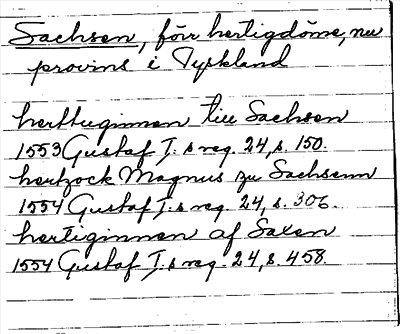 Sachsen, förr hertigdöme, nu
provins i Tyskland
herttuginnan till Sachsen
1553 Gustaf I:s reg. 24, s. 150.
hertzock Magnus zu Sachsenn
1554 Gustaf I:s reg. 24, s. 306.
hertiginnen af Saxen
1554 Gustaf I:s reg. 24, s. 458.